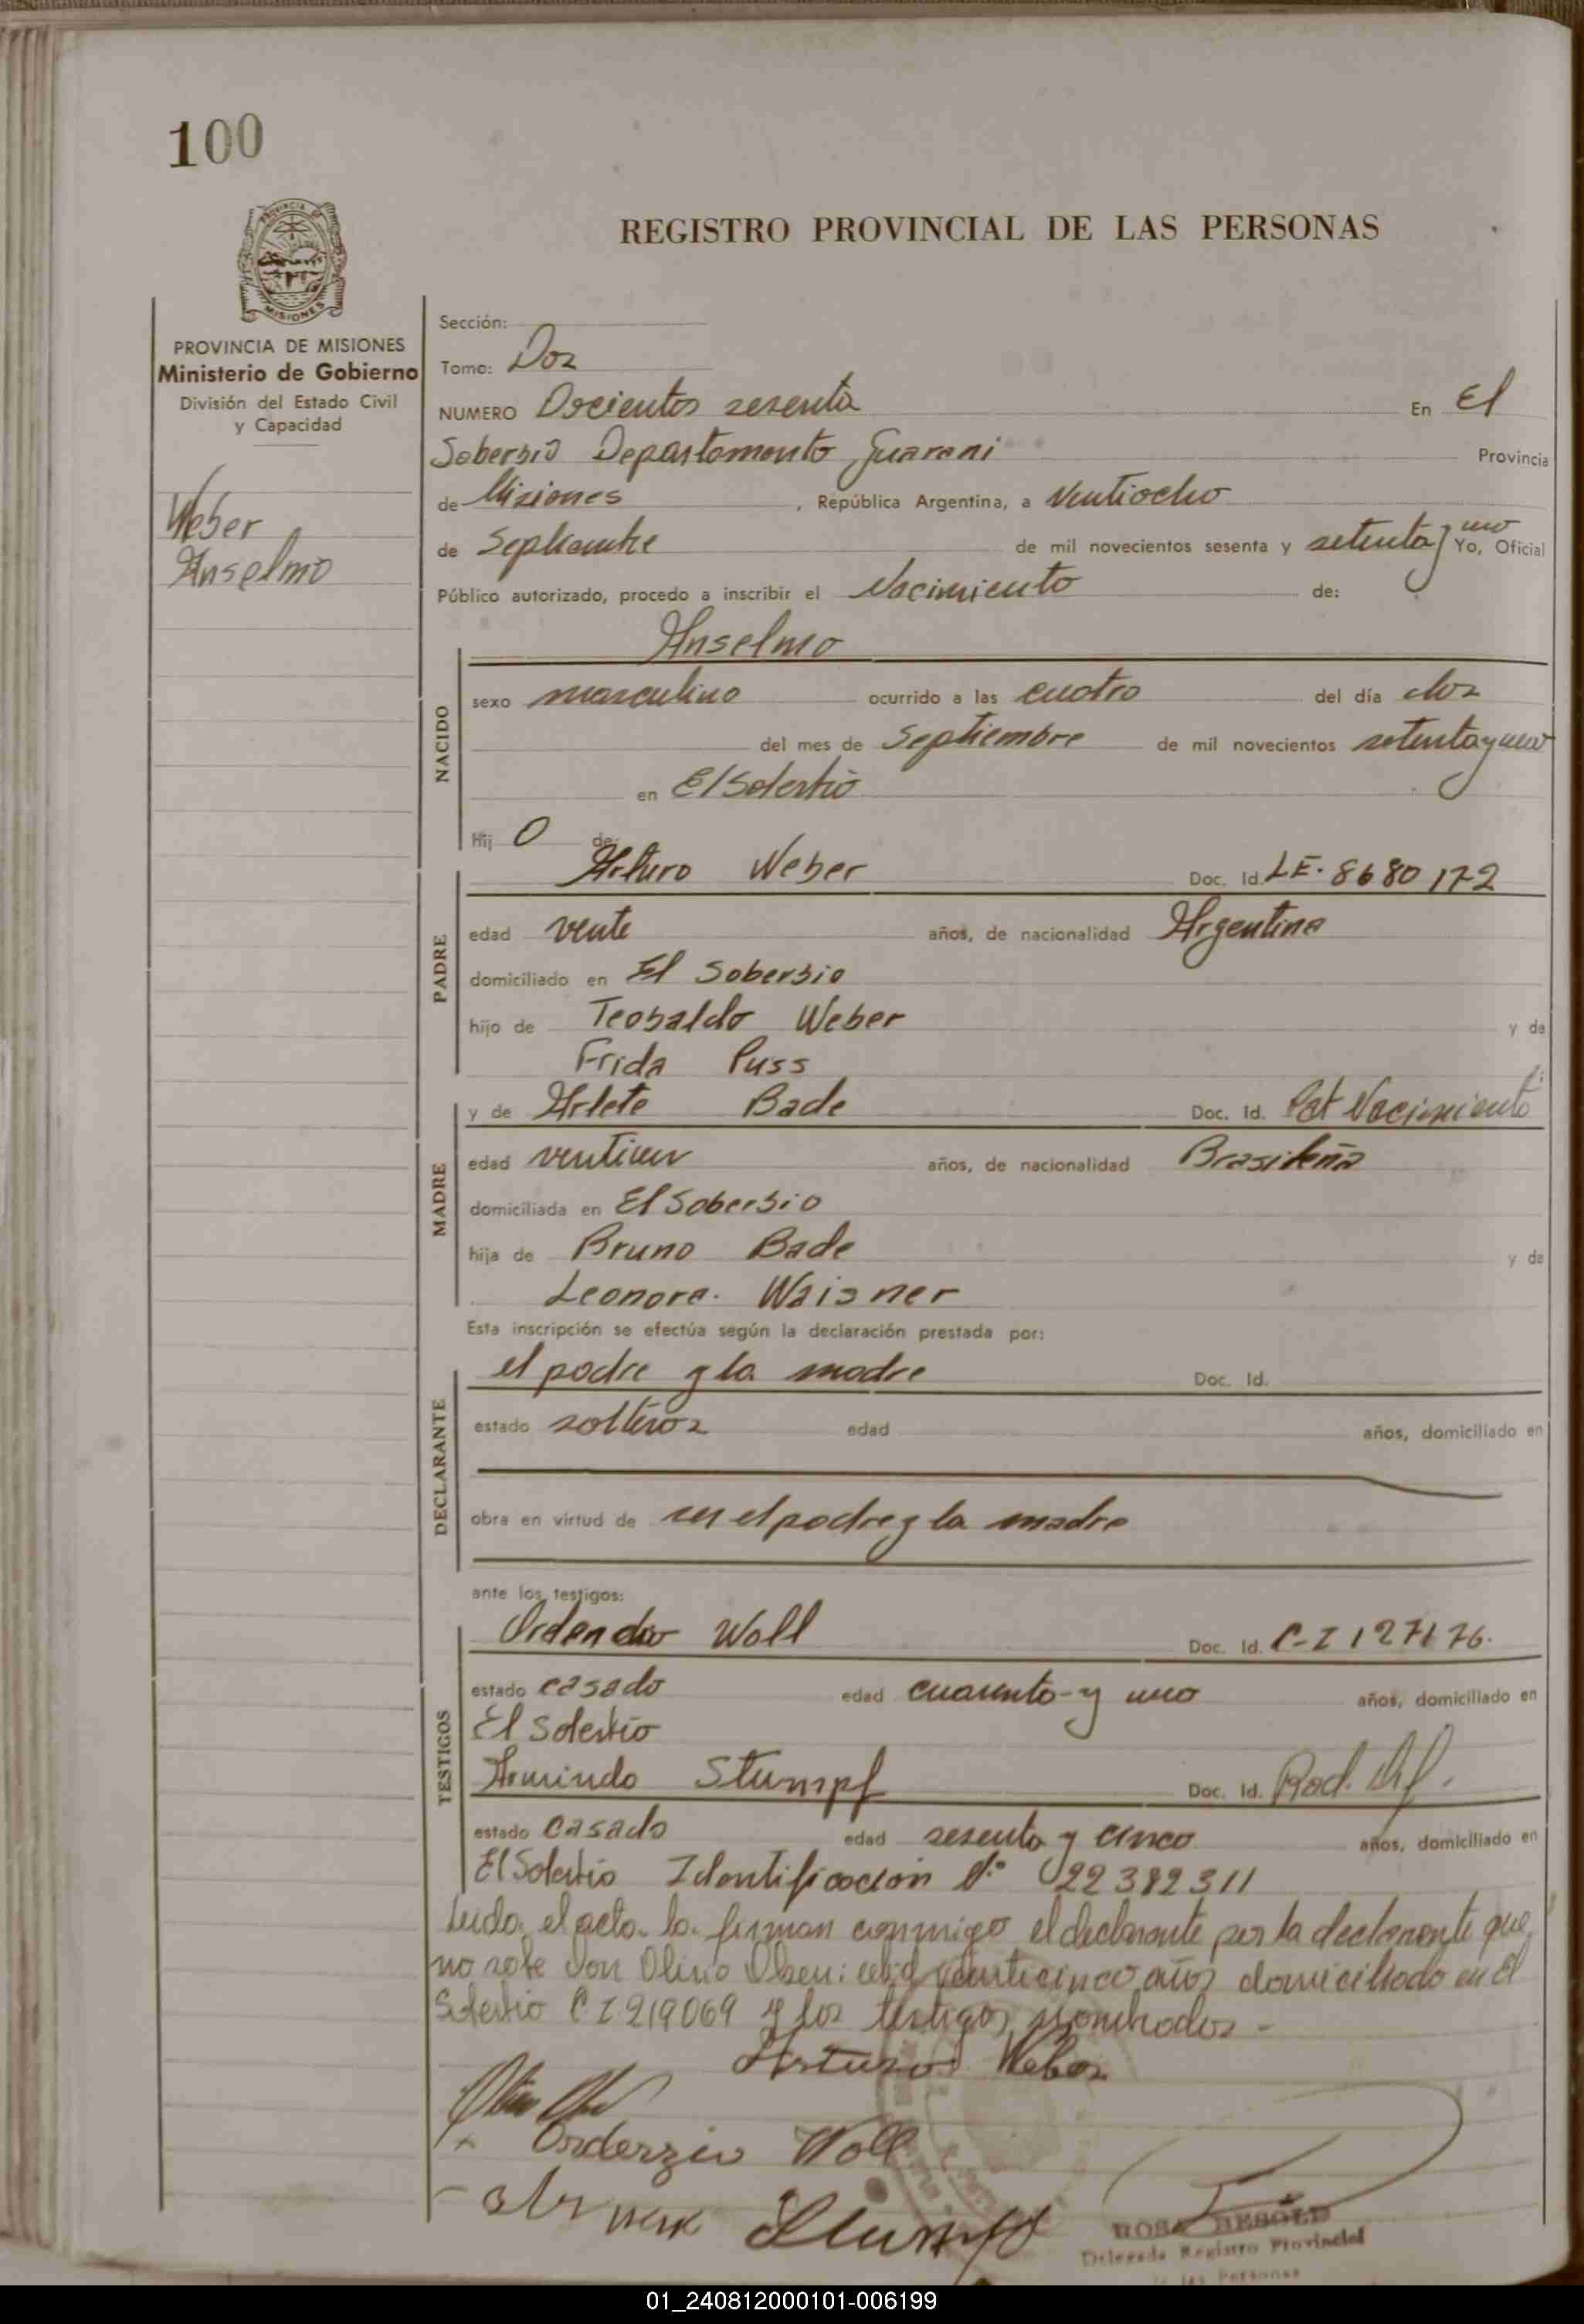 100
PROVINCIA DE
MISIONES
REGISTRO PROVINCIAL DE LAS PERSONAS
PROVINCIA DE MISIONES
Ministerio de Gobierno
División del Estado Civil
y Capacidad
Weber
Anselmo
Sección:
Tomo: Dos
NUMERO Docientos sesenta En El
Soberbio Departamento Guarani Provincia
de Misiones , República Argentina, a Ventiocho
de Septiembre de mil novecientos sesenta y setenta y uno Yo, Oficial
Público autorizado, procedo a inscribir el Nacimiento de:
NACIDO
Anselmo
sexo masculino ocurrido a las cuatro del día dos
del mes de Septiembre de mil novecientos setenta y uno
en El Soberbio
Hij o de:
PADRE
Arturo Weber Doc. Id. LE. 8680172
edad vente años, de nacionalidad Argentina
domiciliado en El Soberbio
hijo de Teobaldo Weber y de
Frida Puss
MADRE
y de Arlete Bade Doc. Id. Nacimiento
edad ventiun años, de nacionalidad Brasileña
domiciliada en El Soberbio
hija de Bruno Bade y de
Leonora. Waisner
Esta inscripción se efectúa según la declaración prestada por:
DECLARANTE
el padre y la madre Doc. Id.
estado solteros edad años, domiciliado en
obra en virtud de ser el padre y la madre
ante los testigos:
TESTIGOS
Woll Doc. Id. C-I 127176.
estado casado edad cuarenta y uno años, domiciliado en
El Soberbio
Armindo Stumpf Doc. Id.
estado casado edad sesenta y cinco años, domiciliado en
El Soberbio Identificacion Nº 22382311
Leida el acta la firman conmigo el declarante por la declarante que
no sabe don Olivio venticinco años domiciliado en El
Soberbio C.I 219069 y los testigos nombrados -
Arturo Weber
Woll
Stumpf
ROSA
Delegada Registro Provincial
de las Personas
01_240812000101-006199